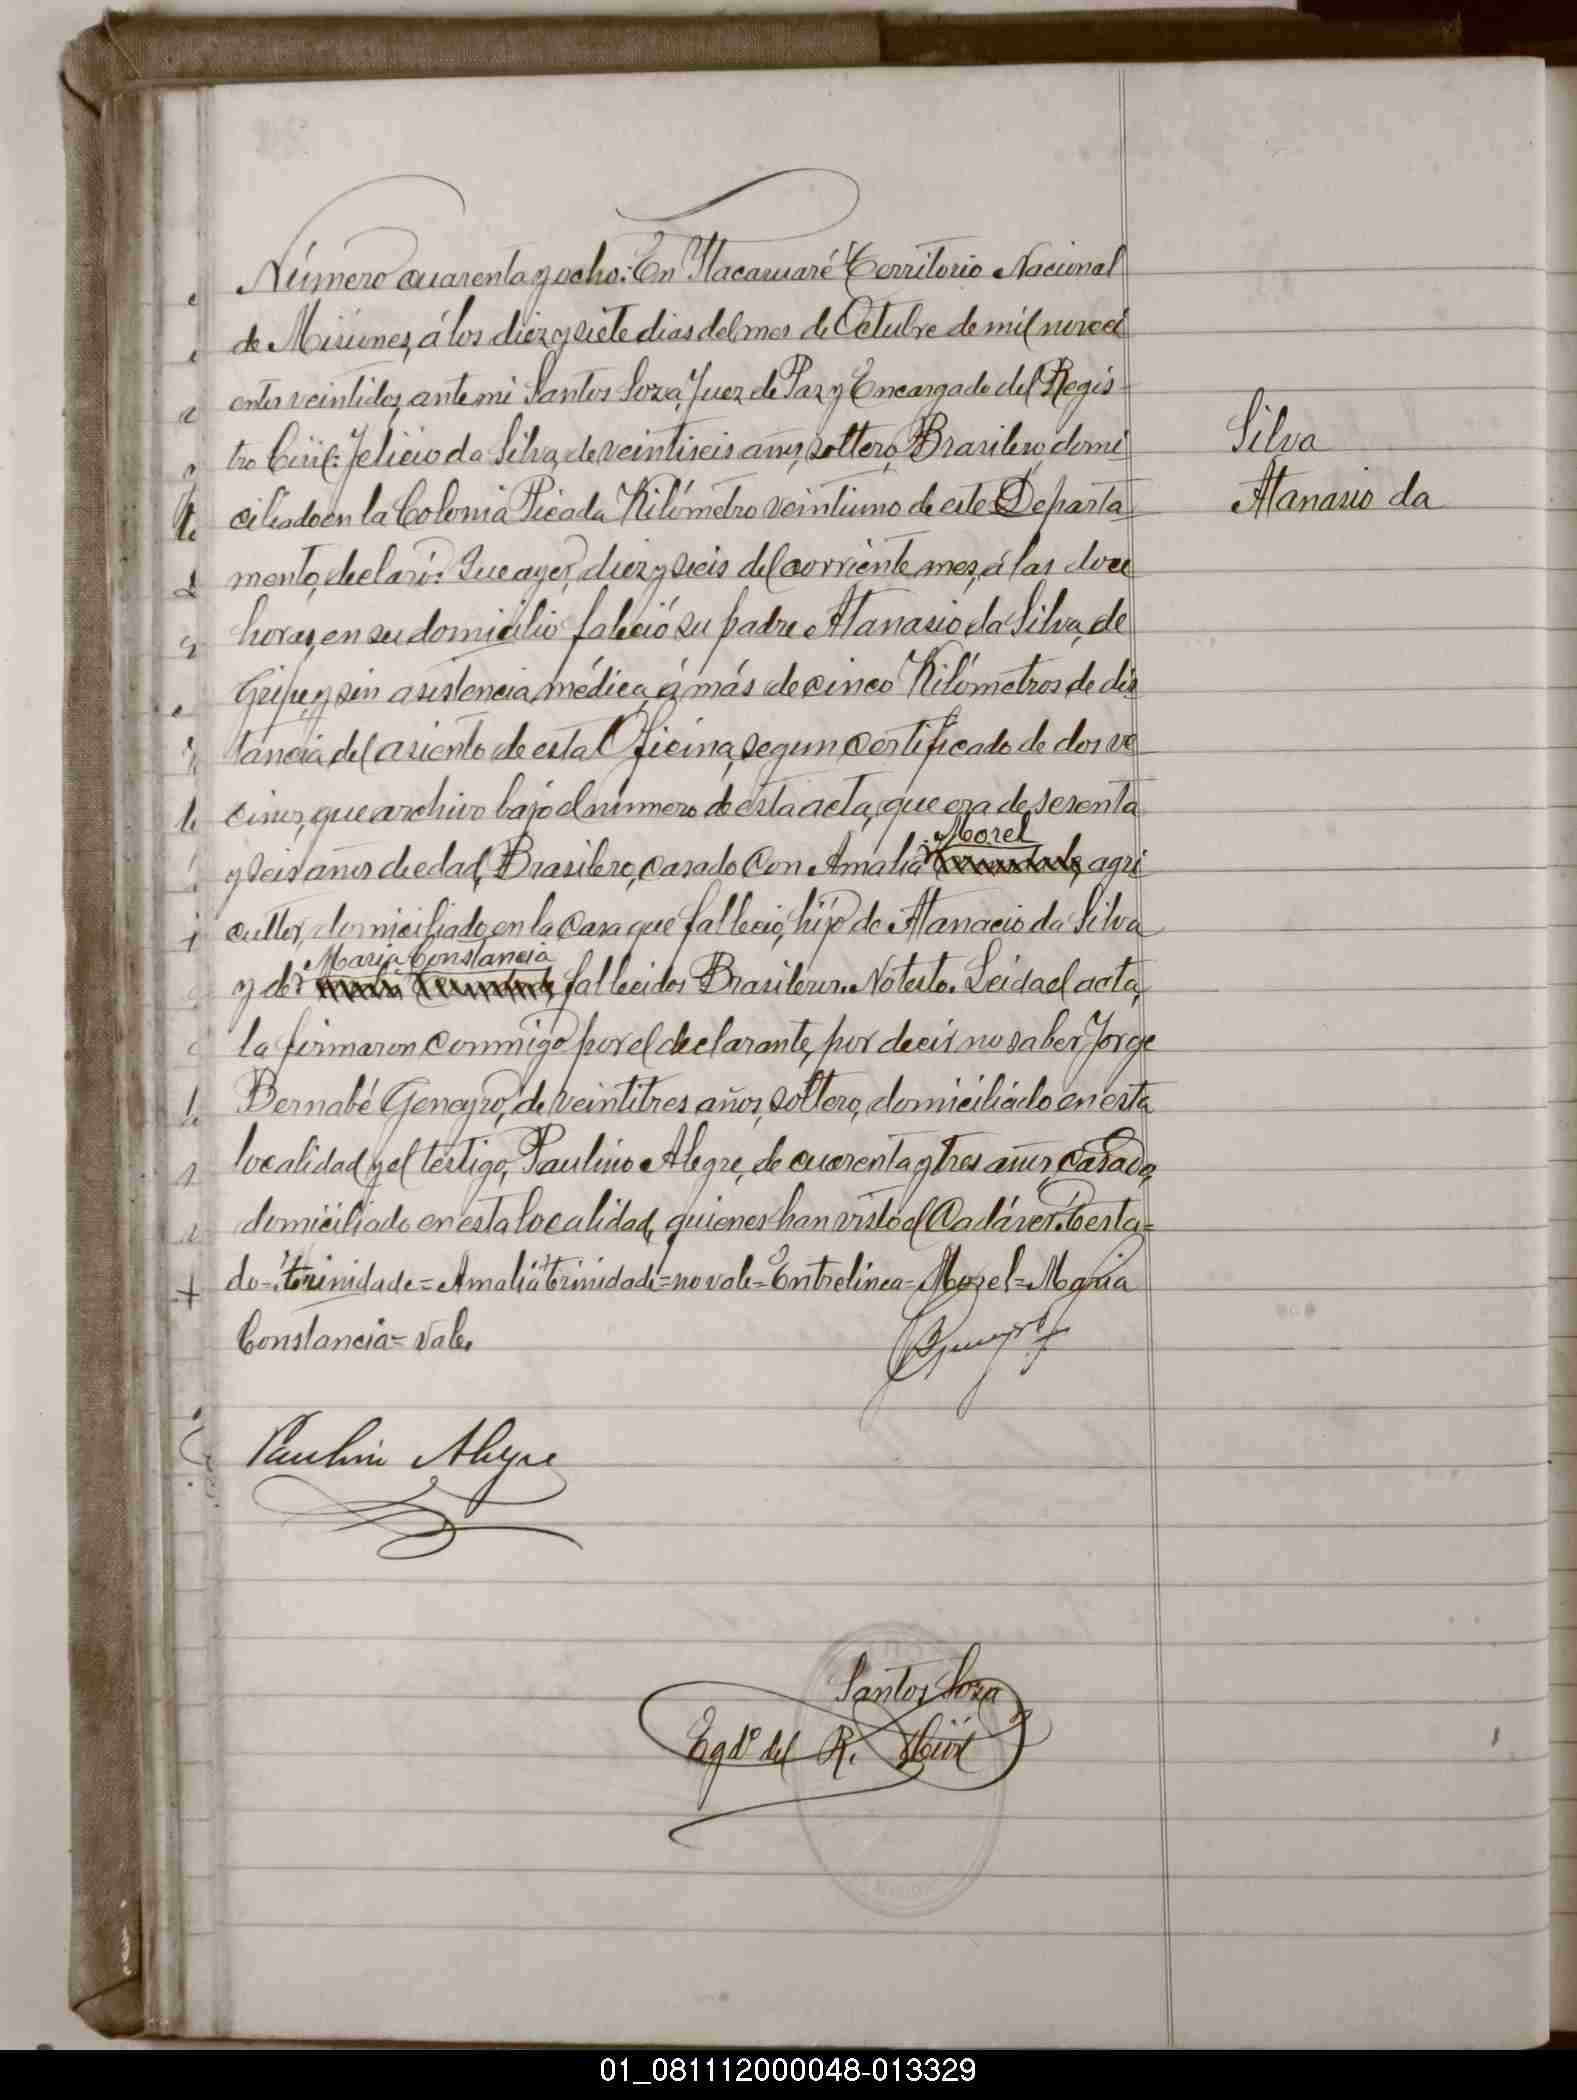 Número cuarenta y ocho: En Itacaruaré Territorio Nacional
de Misiones, á los diez y siete dias del mes de Octubre de mil noveci
entos veintidos, ante mi Santos Soza, Juez de Paz y Encargado del Regis-
tro Civil: Felicio da Silva, de veintiseis años, soltero, Brasilero, domi
Silva
ciliado en la Colonia Picada Kilómetro veintiuno de este Departa-
Atanasio da
mento, declaró: Que ayer, diez y seis del corriente mes, á las doce
horas, en su domicilio falició su padre Atanasio da Silva, de
Gripe, y sin asistencia médica, á más de cinco Kilómetros de dis
tancia del asiento de esta Oficina, segun certificado de dos ve
cinos, que archivo bajo el número de esta acta, que era de sesenta
Morel
y seis años de edad, Brasilero, casado con Amalia Terinidade, agri
cultor, domiciliado en la casa que fallecio, hijo de Atanacio da Silva
Maria Constancia
y de fallecidos Brasileros. No testo. Leida el acta,
la firmaron conmigo por el declarante, por decir no saber Jorge
Bernabé Geneyro, de veintitres años, soltero, domiciliado en esta
localidad y el testigo, Paulino Alegre, de cuarenta y tres años, casado,
domiciliado en esta localidad, quienes han visto el Cadáver. Testa-
do = terinidade = Amalia terinidade = no vale = Entrelinea = Morel = Maria
Constancia = Vale.
Paulino Alegre
Santos Soza
Egdo del R. Civil
01_081112000048-013329